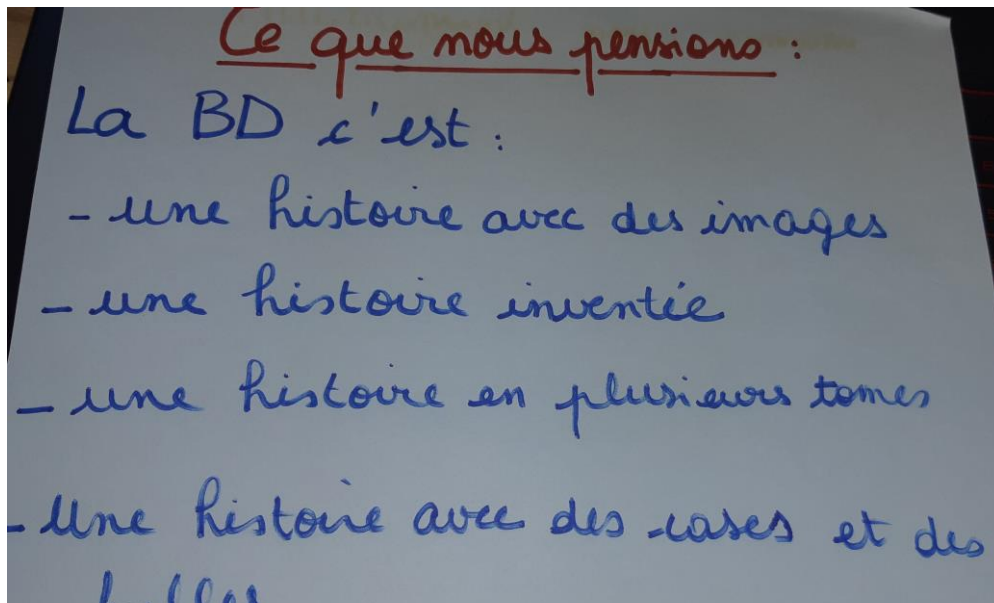 Ce que nous pensions :
La BD c'est :
- une histoire avec des images
- une histoire inventée
- une histoire en plusieurs tomes
- Une histoire avec des cases et des